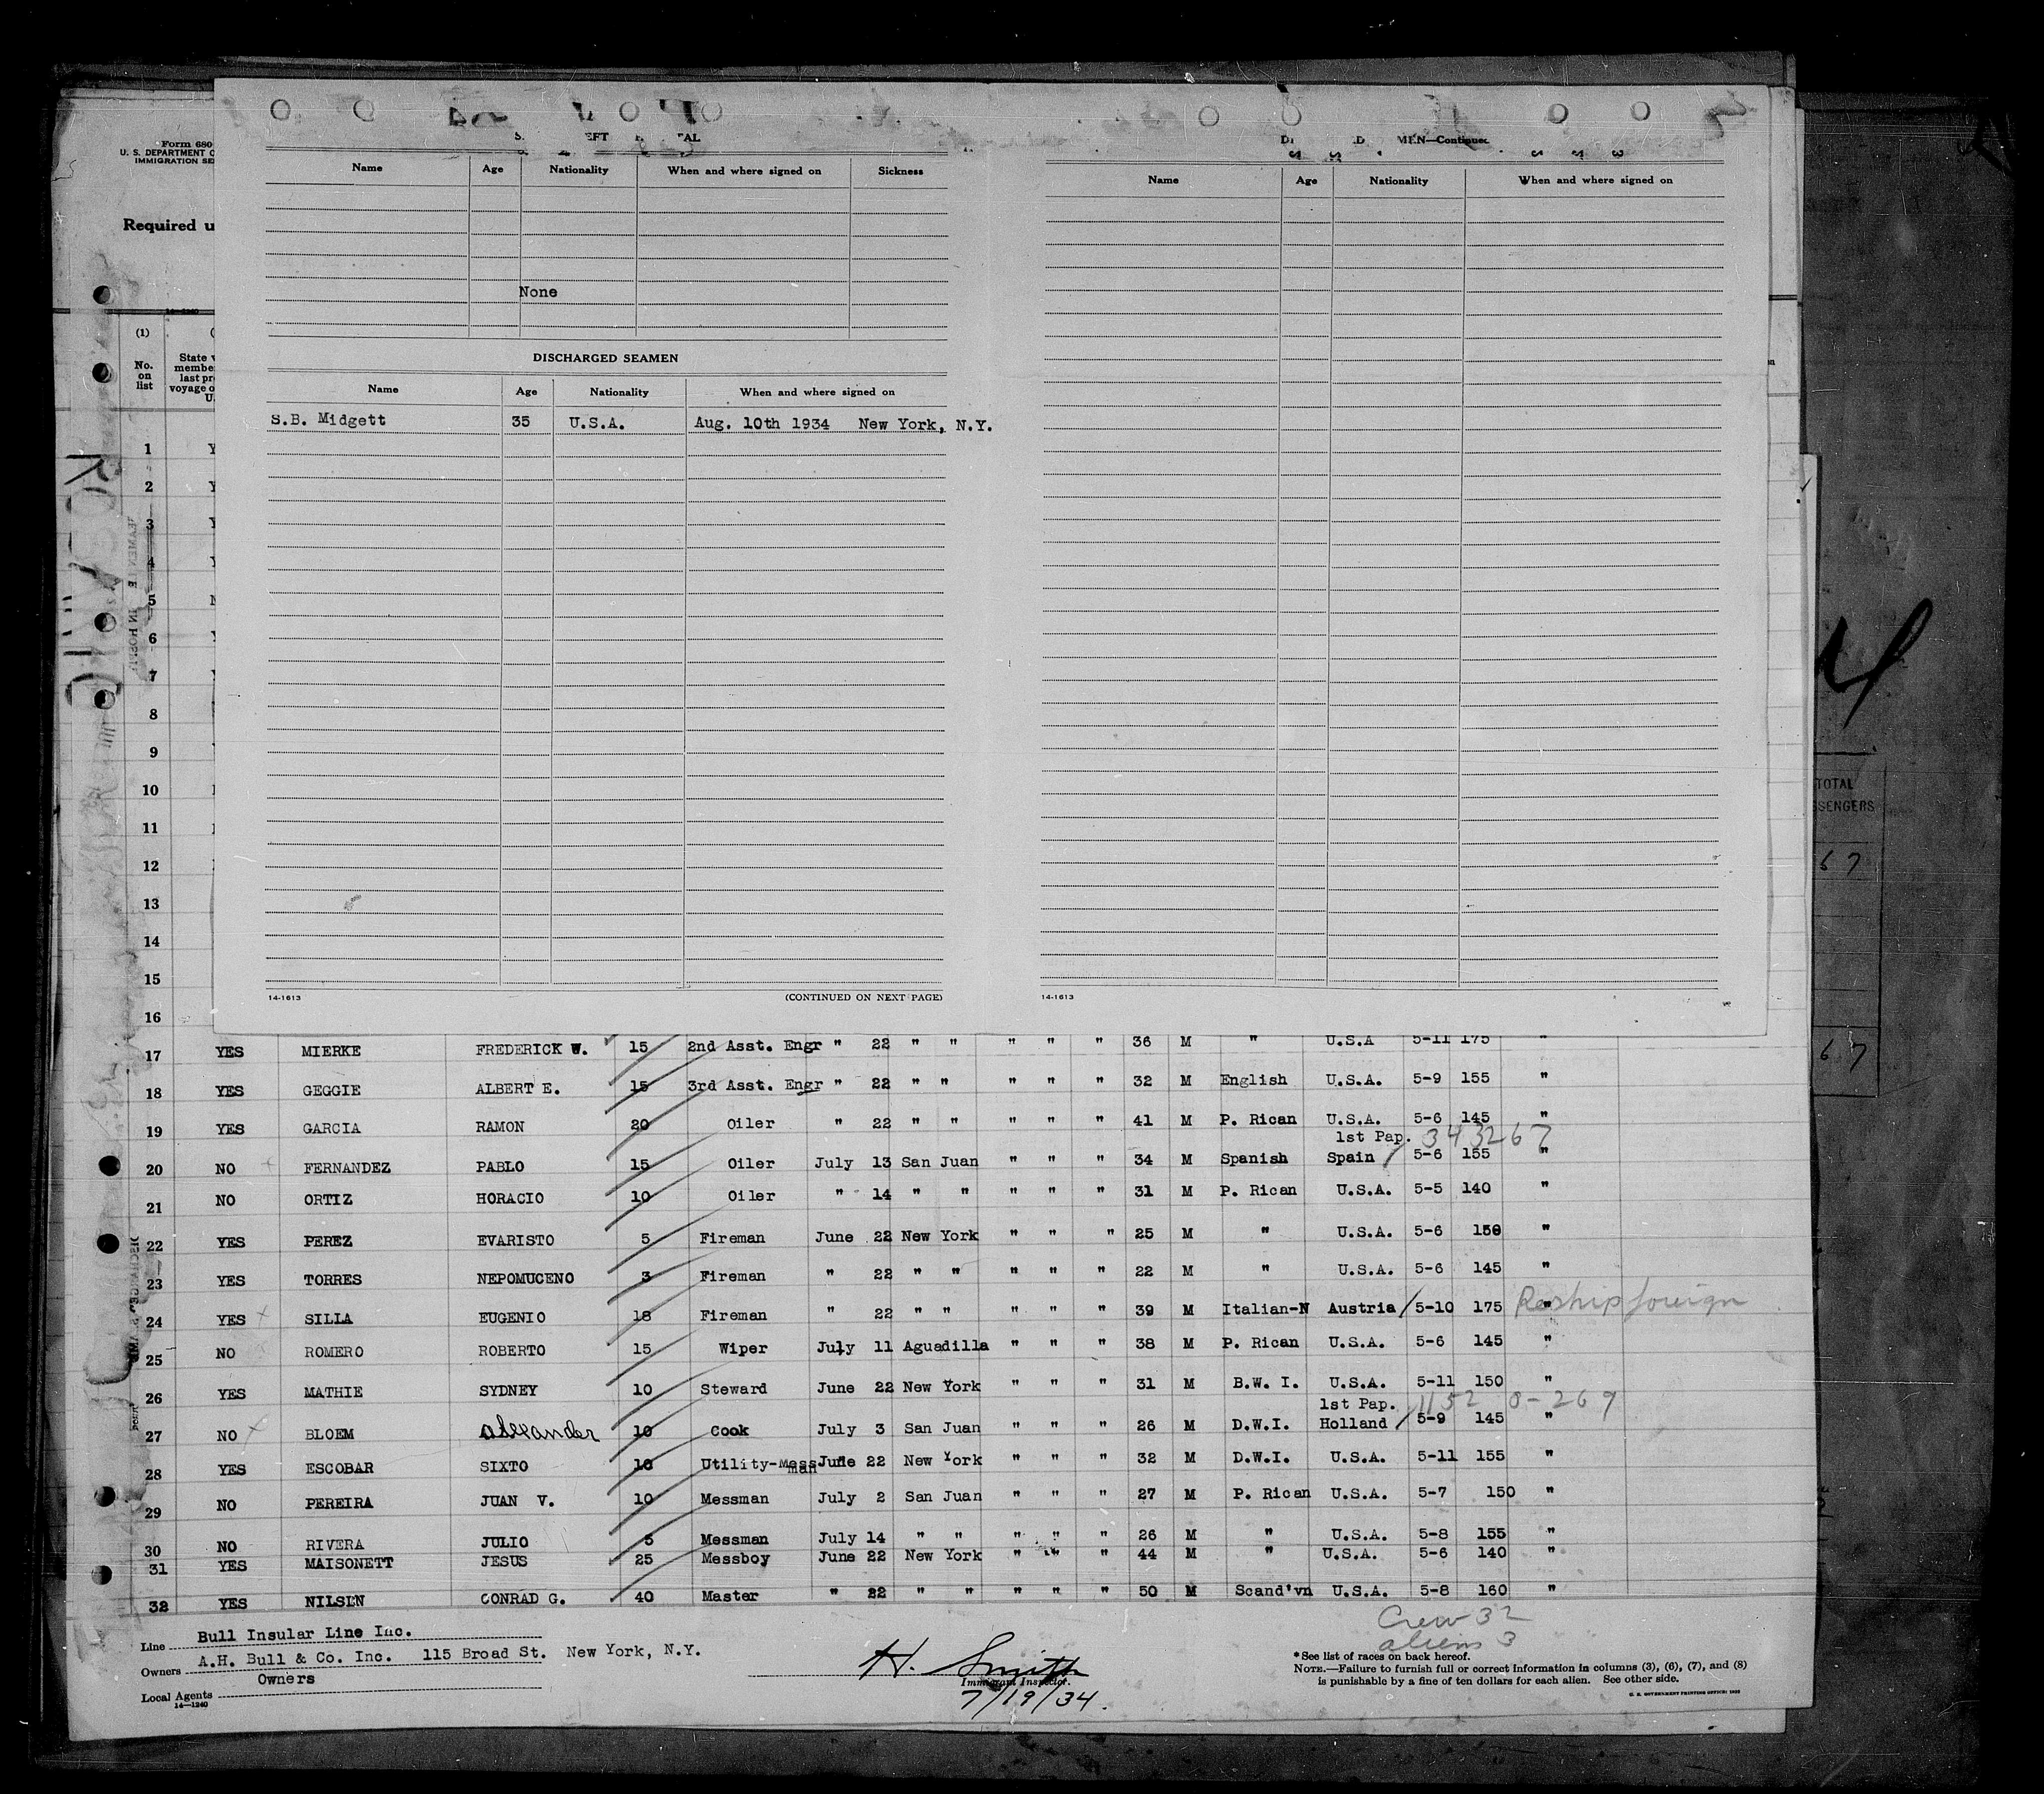 Form 680
U. S. DEPARTMENT O
IMMIGRATION SE
Required u
14-1240
(1)
No. on list
State v
member
last pre
voyage o
U.
EFT
TAL
Name Age Nationality When and where signed on Sickness
None
DISCHARGED SEAMEN
Name Age Nationality When and where signed on
S.B. Midgett 35 U.S.A. Aug. 10th 1934 New York, N.Y.
14-1613 (CONTINUED ON NEXT PAGE)
MEN—Continued
Name Age Nationality When and where signed on
14-1613
TOTAL
SSENGERS
67
67
1 Y
2 Y
3 Y
4 Y
5
6
7
8
9
10
11
12
13
14
15
16
17 YES MIERKE FREDERICK W. 15 2nd Asst. Engr " 22 " " " " " 36 M " U.S.A 5-11 175 "
18 YES GEGGIE ALBERT E. 15 3rd Asst. Engr " 22 " " " " " 32 M English U.S.A. 5-9 155 "
19 YES GARCIA RAMON 20 Oiler " 22 " " " " " 41 M P. Rican U.S.A. 5-6 145 "
1st Pap. 343267
20 NO FERNANDEZ PABLO 15 Oiler July 13 San Juan " " " 34 M Spanish Spain 5-6 155 "
21 NO ORTIZ HORACIO 10 Oiler " 14 " " " " " 31 M P. Rican U.S.A. 5-5 140 "
22 YES PEREZ EVARISTO 5 Fireman June 22 New York " " " 25 M " U.S.A. 5-6 150 "
23 YES TORRES NEPOMUCENO 3 Fireman " 22 " " " " " 22 M " U.S.A. 5-6 145 "
24 YES SILLA EUGENIO 18 Fireman " 22 " " " " " 39 M Italian-N Austria 5-10 175 " Reship foreign
25 NO ROMERO ROBERTO 15 Wiper July 11 Aguadilla " " " 38 M P. Rican U.S.A. 5-6 145 "
26 YES MATHIE SYDNEY 10 Steward June 22 New York " " " 31 M B.W. I. U.S.A. 5-11 150 "
1st Pap.
27 NO BLOEM Alexander 10 Cook July 3 San Juan " " " 26 M D.W.I. Holland 5-9 145 "
28 YES ESCOBAR SIXTO 10 Utility-Messman June 22 New York " " " 32 M D.W.I. U.S.A. 5-11 155 "
29 NO PEREIRA JUAN V. 10 Messman July 2 San Juan " " " 27 M P. Rican U.S.A. 5-7 150 "
30 NO RIVERA JULIO 5 Messman July 14 " " " " " 26 M " U.S.A. 5-8 155 "
31 YES MAISONETT JESUS 25 Messboy June 22 New York " " " 44 M " U.S.A. 5-6 140 "
32 YES NILSEN CONRAD G. 40 Master " 22 " " " " " 50 M Scand'vn U.S.A. 5-8 160 "
Crew 32
aliens 3
Line Bull Insular Line Inc.
Owners A.H. Bull & Co. Inc. 115 Broad St. New York, N.Y.
Local Agents Owners
14-1240
H. Smith
Immigrant Inspector.
7/19/34.
*See list of races on back hereof.
NOTE.—Failure to furnish full or correct information in columns (3), (6), (7), and (8)
is punishable by a fine of ten dollars for each alien. See other side.
U. S. GOVERNMENT PRINTING OFFICE: 1932